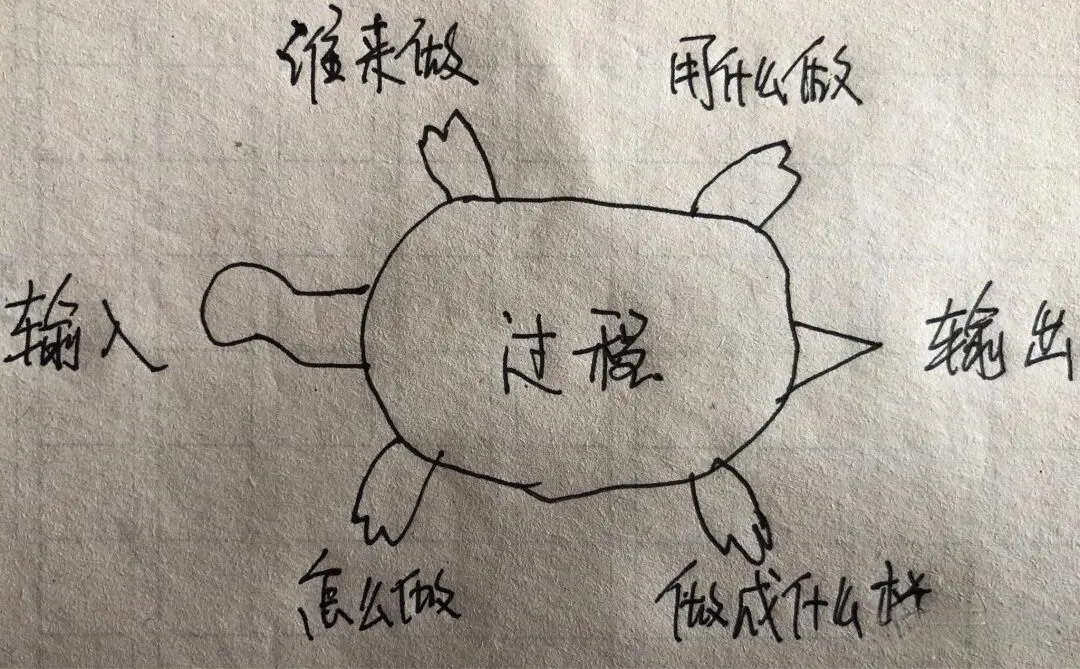 谁来做
用什么做
输入
过程
输出
怎么做
做成什么样